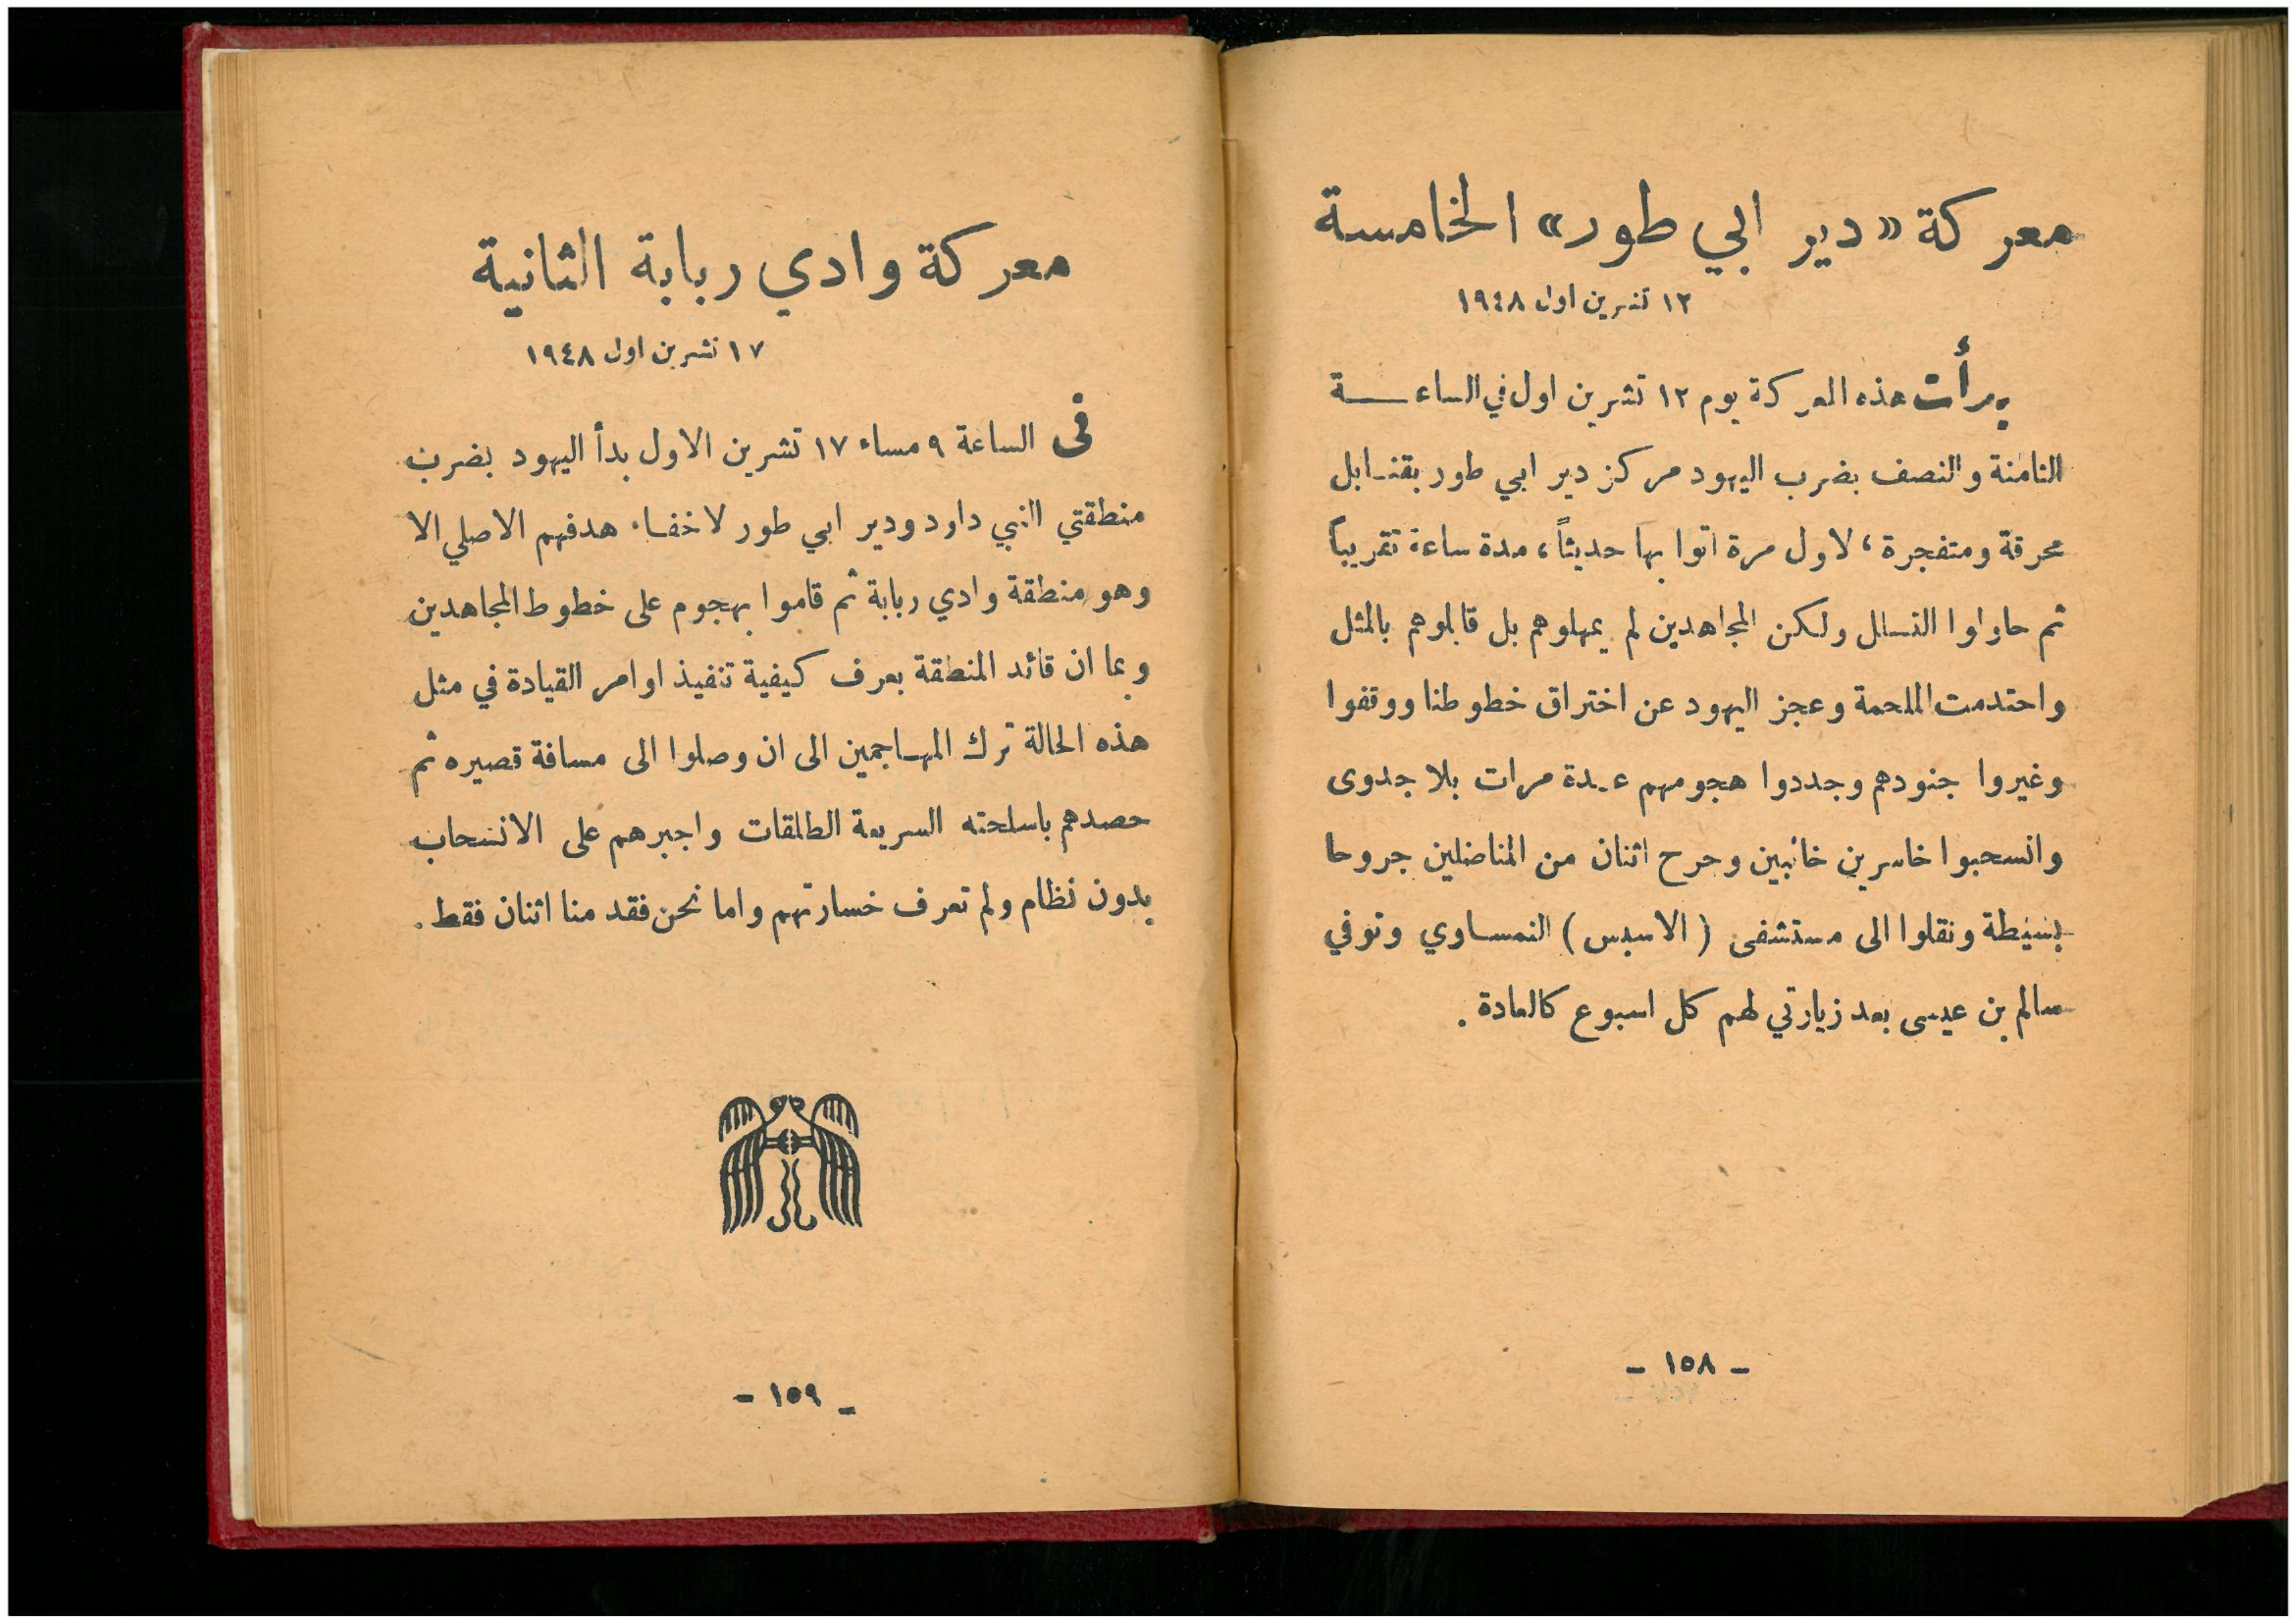 معركة «دير ابي طور» الخامسة
١٢ تشرين اول ١٩٤٨
بدأت هذه المعركة يوم ١٢ تشرين اول في الساعة
الثامنة والنصف بضرب اليهود مركز دير ابي طور بقنابل
محرقة ومتفجرة، لاول مرة اتوا بها حديثاً، مدة ساعة تقريباً
ثم حاولوا التسلل ولكن المجاهدين لم يمهلوهم بل قابلوهم بالمثل
واحتدمت الملحمة وعجز اليهود عن اختراق خطوطنا ووقفوا
وغيروا جنودهم وجددوا هجومهم عدة مرات بلا جدوى
وانسحبوا خاسرين خائبين وجرح اثنان من المناضلين جروحا
بسيطة ونقلوا الى مستشفى (الاسبس) النمساوي وتوفي
سالم بن عيسى بعد زيارتي لهم كل اسبوع كالعادة.
- ١٥٨ -
معركة وادي ربابة الثانية
١٧ تشرين اول ١٩٤٨
فى الساعة ٩ مساء ١٧ تشرين الاول بدأ اليهود بضرب
منطقتي النبي داود ودير ابي طور لاخفاء هدفهم الاصلي الا
وهو منطقة وادي ربابة ثم قاموا بهجوم على خطوط المجاهدين
وبما ان قائد المنطقة يعرف كيفية تنفيذ اوامر القيادة في مثل
هذه الحالة ترك المهاجمين الى ان وصلوا الى مسافة قصيره ثم
حصدهم باسلحته السريعة الطلقات واجبرهم على الانسحاب
بدون نظام ولم تعرف خسارتهم واما نحن فقد منا اثنان فقط.
- ١٥٩ -